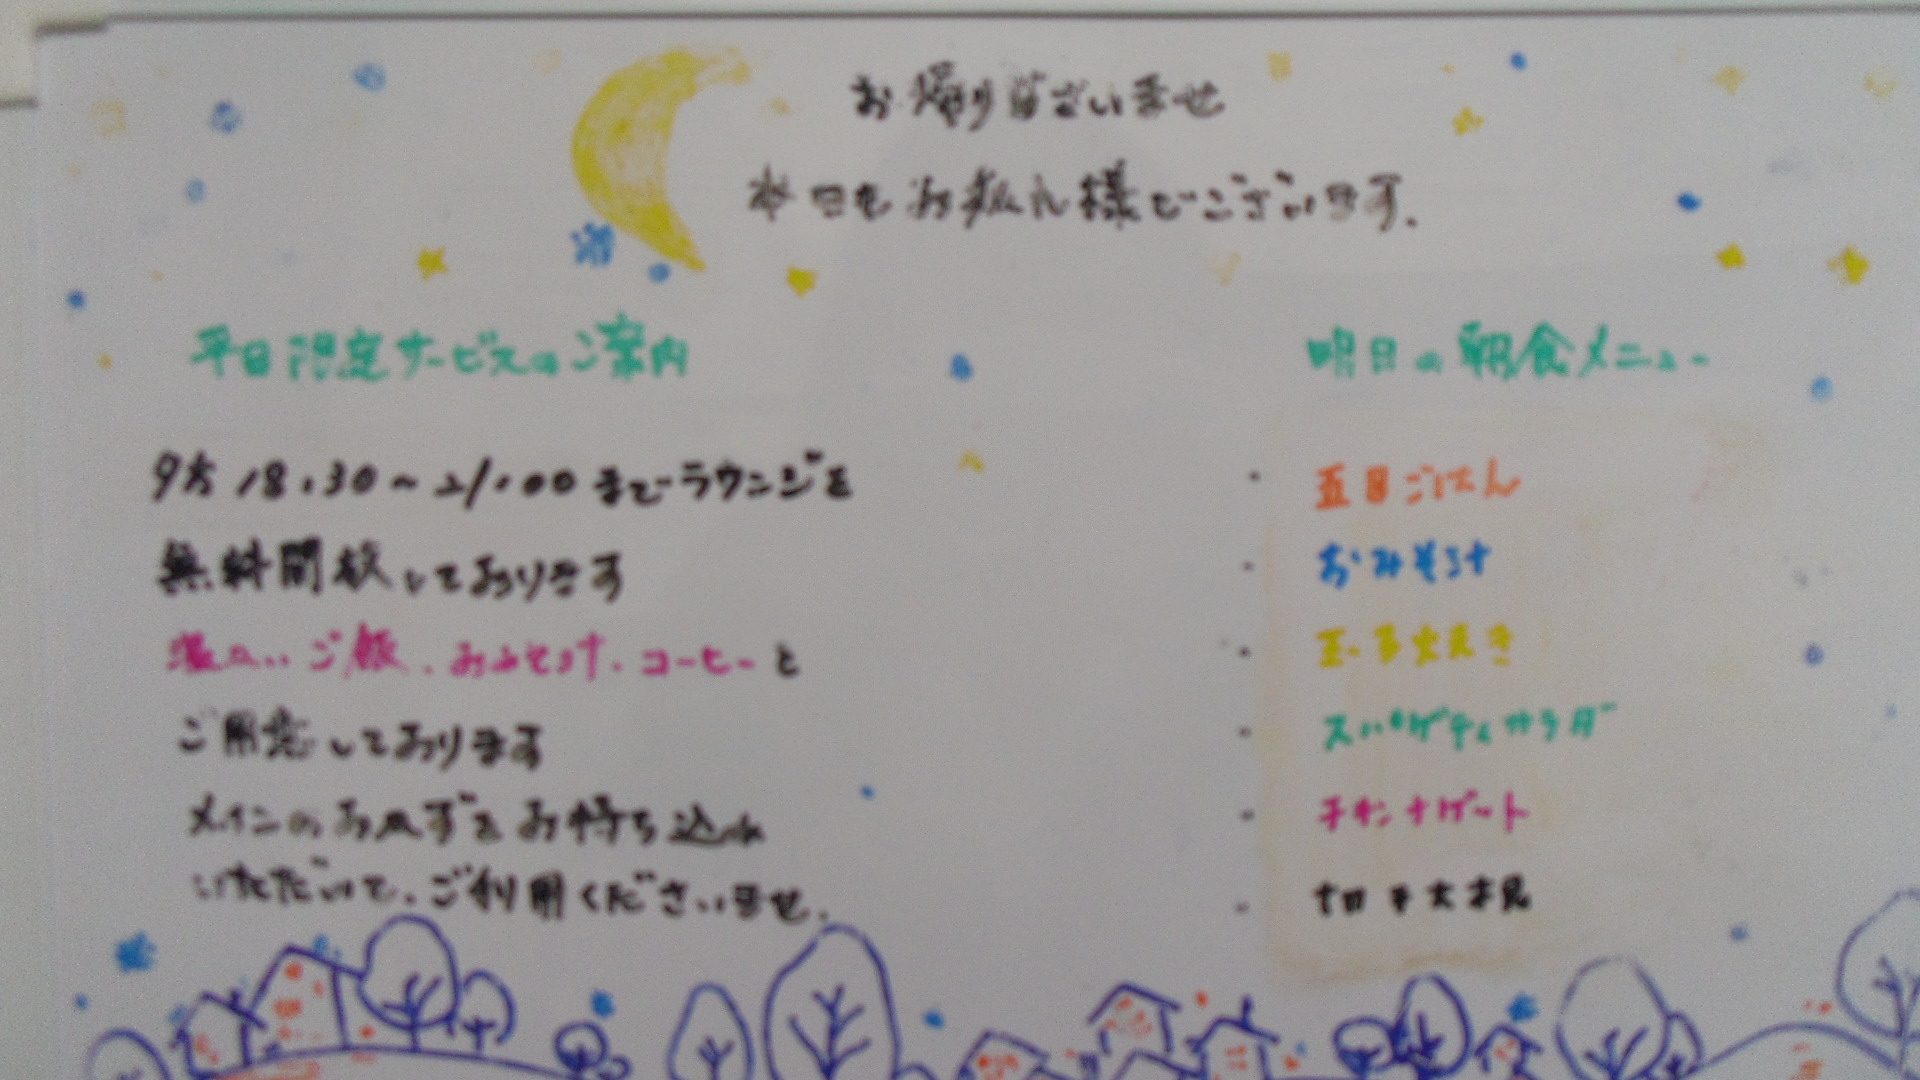 お帰りなさいませ
本日もお疲れ様でございます。
平日限定サービスのご案内
夕方 18:30～21:00 までラウンジを
無料開放しております
温かいご飯、おみそ汁、コーヒーと
ご用意しております
メインのおかずをお持ち込み
いただいて、ご利用くださいませ。
明日の朝食メニュー
・五目ごはん
・おみそ汁
・玉子焼き
・スパゲティサラダ
・チキンナゲット
・切干大根